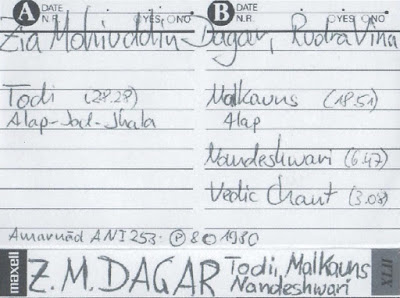 A DATE N.R. YES NO B DATE N.R. YES NO
Zia Mohiuddin Dagar, Rudra Vina
Todi (28.28)
Alap-Jod-Jhala
Malkauns (18.51)
Alap
Nandeshwari (6.47)
Vedic Chant (3.08)
Amarnād ANI 253 · Ⓟ & © 1980
maxell Z. M. DAGAR Todi, Malkauns XLII
Nandeshwari